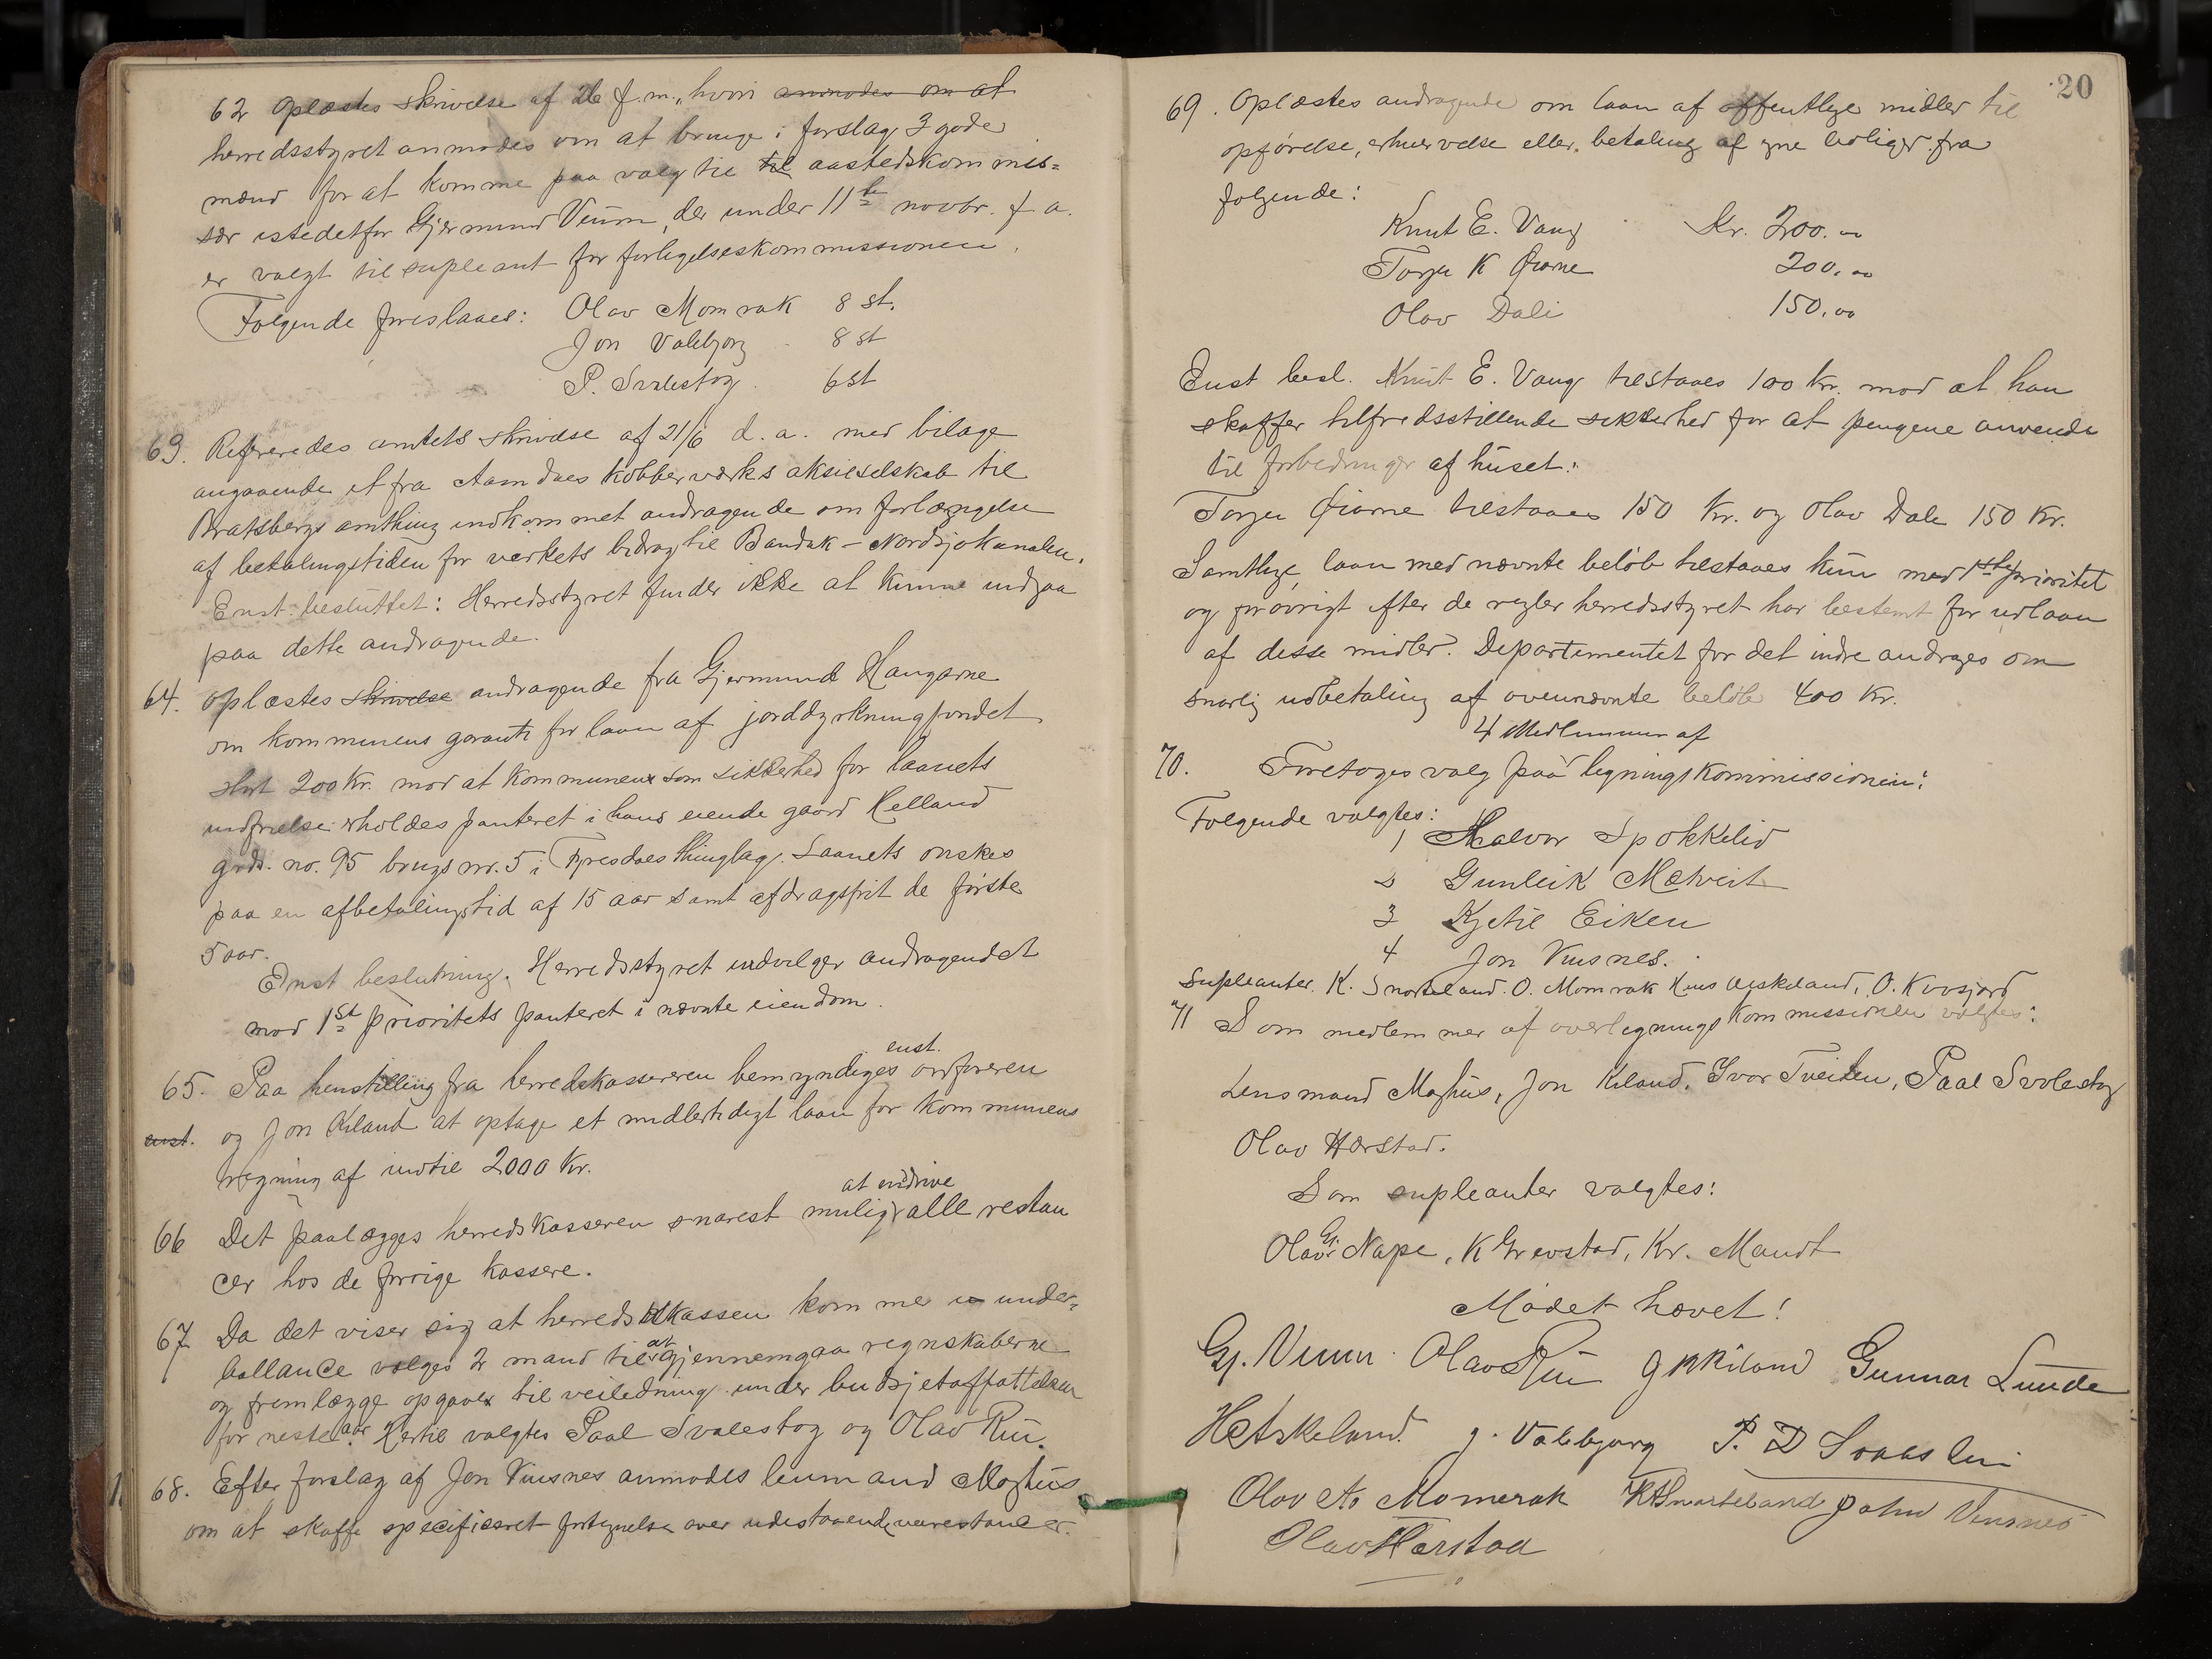 62 Oplæstes skrivelse af 26 f.m., hvori anmodes om at
herredsstyret anmodes om at bringe i forslag 3 gode
mænd for at komme paa valg til til aastedskommis-
sær istedetfor Gjermund Veum, der under 11te novbr. f. a.
er valgt til supleant for forligelseskommissionen.
Følgende foreslaaes: Olav Momrak 8 st.
Jon Valebjorg 8 st
P. Svalestog 6 st
63. Refereredes amtets skrivelse af 21/6 d.a. med bilage
angaaende et fra Aamdals kobberværks aksieselskab til
Bratsbergs amthing indkommet andragende om forlængelse
af betalingstiden for verkets bidrag til Bandak-Nordsjøkanalen.
Enst. besluttet: Herredsstyret finder ikke at kunne indgaa
paa dette andragende.
64. Oplæstes skrivelse andragende fra Gjermund Haugarne
om kommunens garanti for laan af jorddyrkningsfondet
stort 200 Kr. mod at kommunen som sikkerhed for laanets
indfrielse erholdes panteret i hans eiende gaard Helland
grds. no. 95 brugs nr. 5 i Fyresdals thinglag. Laanets ønskes
paa en afbetalingstid af 15 aar samt afdragsfrit de første
5 aar.
Enst beslutning. Herredsstyret indvilger andragendet
mod 1st prioritets panteret i nævnte eiendom.
enst.
65. Paa henstilling fra herredskassereren bemyndiges ordføreren
enst. og Jon Kiland at optage et midlertidigt laan for kommunens
regning af indtil 2000 Kr.
at inddrive
66 Det paalægges herredskasseren snarest mulig alle restan
cer hos de forrige kassere.
67 Da det viser sig at herredskassen kommer i under-
ballance vælges 2 mand til at gjennemgaa regnskaberne
og fremlægge opgaver til veiledning under budsjetaffattelsen
for neste aar. Hertil valgtes Paal Svalestog og Olav Rui.
68. Efter forslag af Jon Vuusnes anmodes lensmand Moghus
om at skaffe specificeret fortegnelse over udestaaende restancer.
20
69. Oplæstes andragende om laan af offentlige midler til
opførelse, erhvervelse eller betaling af egne boliger fra
følgende:
Knut E. Vaag Kr. 200.00
Torju K Øiarne 200.00
Olav Dali 150.00
Enst besl. Knut E. Vaag tilstaaes 100 Kr. mod at han
skaffer tilfredsstillende sikkerhed for at pengene anvende
til forbedringer af huset.
Torju Øiarne tilstaaes 150 Kr. og Olav Dale 150 Kr.
Samtlige laan med nævnte beløb tilstaaes kun mod 1ste prioritet
og forøvrigt efter de regler herredsstyret har bestemt for udlaan
af disse midler. Departementet for det indre andrages om
snarlig udbetaling af ovennævnte beløb 400 Kr.
4 Medlemmer af
70. Foretoges valg paa ligningskommissionen:
Følgende valgtes:
1 Halvor Spokkelid
2 Gunleik Mætveit
3 Kjetil Eiken
4 Jon Vuusnes.
Supleanter. K. Snarteland. O. Momrak Hans Aaskeland, O. Kvosjord
71 Som medlemmer af overligningskommissionen valgtes:
Lensmand Moghus, Jon Kiland, Ivar Tveiten, Paal Svalestog
Olav Hærstad.
Som supleanter valgtes:
Olav Gj. Nape, K Grevstad, Kr. Mandt
Mødet hævet!
Gj. Veum Olav Rui J K Kiland Gunnar Lunde
H Askeland. J. Valebjorg P. D Svalestui
Olav As Momerak K H Snarteland John Vuusnes
Olav Hærstad